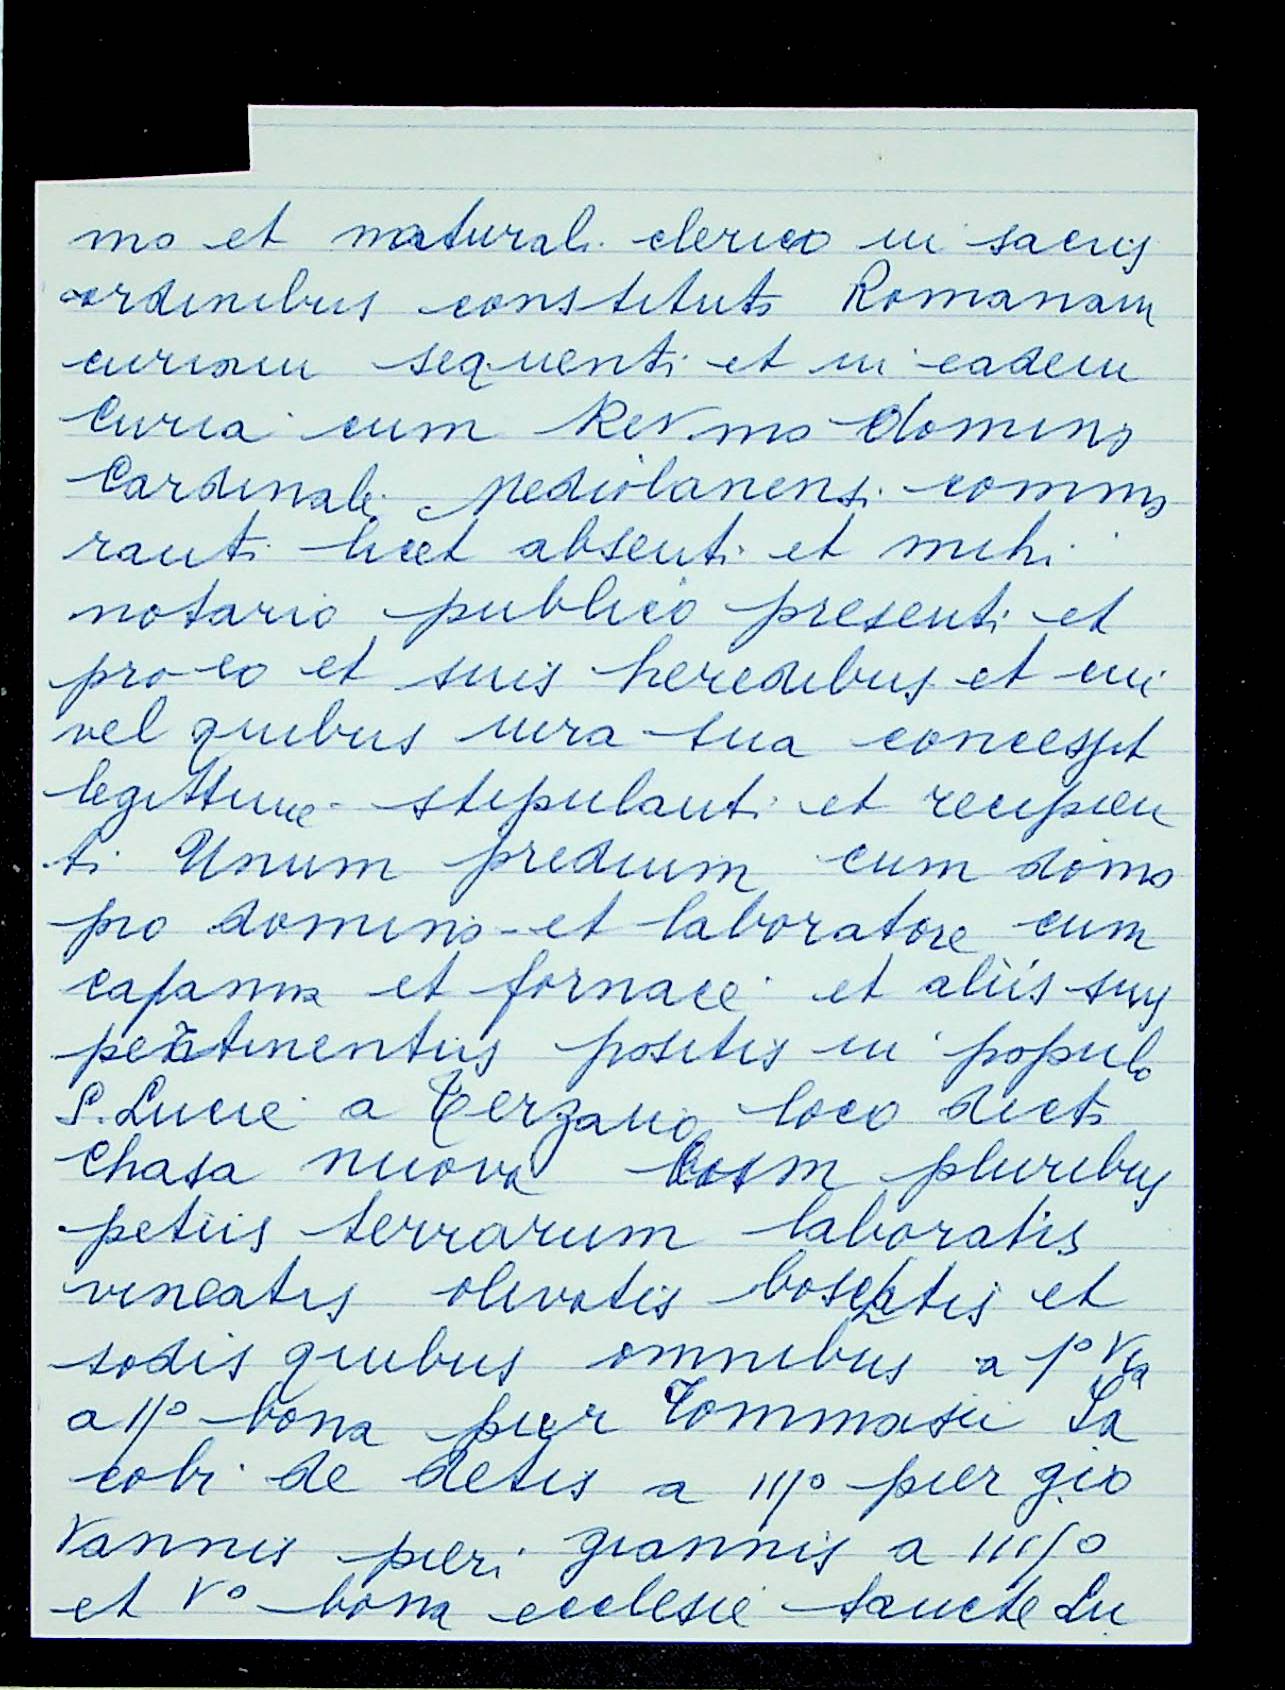 mo et naturali clerico in sacris
ordinibus constituto Romanam
curiam sequenti et in eadem
Curia cum Revmo Domino
Cardinali Mediolanensi commo
ranti licet absenti et mihi
notario publico presenti et
pro eo et suis heredibus et cui
vel quibus iura sua concesserit
legittime stipulanti et recipien
ti Unum predium cum domo
pro domino et laboratore cum
capanna et fornace et aliis suis
pertinentiis positis in populo
S. Lucie a Terzano loco dicto
Chasa nuova cum pluribus
petiis terrarum laboratis
vineatis olivatis boschatis et
sodis quibus omnibus a 1° Via
a II° bona pier Tommasii Ia
cobi de detis a III° pier gio
vannis pieri giannis a IIII°
et V° bona ecclesie sancte Lu